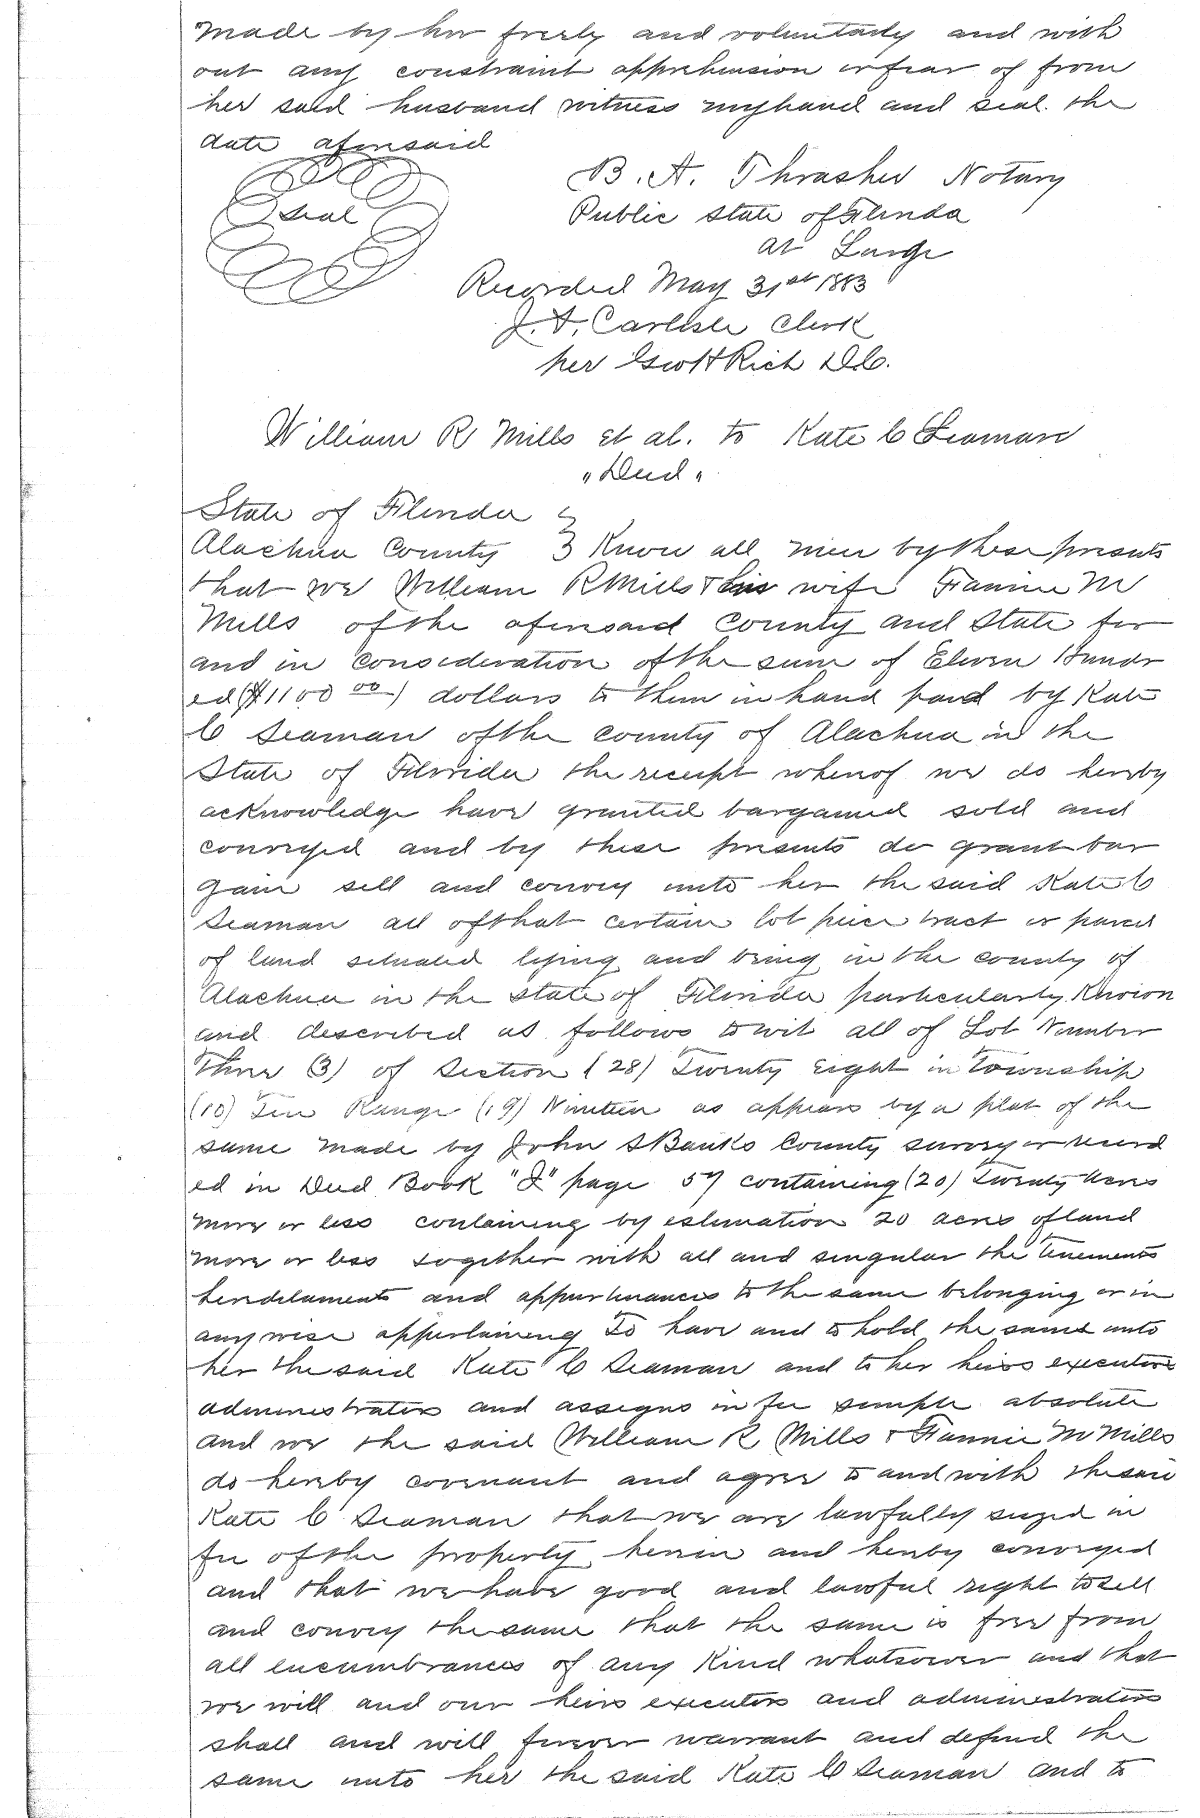 made by her freely and voluntarily and with
out any constraint apprehension or fear of from
her said husband witness my hand and seal the
date aforesaid
Seal
B. A. Thrasher Notary
Public State of Florida
at Large
Recorded May 31st 1883
J. A. Carlisle Clerk
per Geo H Rich D.C.
William R Mills et al. to Kate C Seaman
"Deed"
State of Florida }
Alachua County } Know all men by these presents
that we William R Mills & his wife Fannie M
Mills of the aforesaid County and State for
and in consideration of the sum of Eleven Hundr
ed ($1100 00) dollars to them in hand paid by Kate
C Seaman of the county of Alachua in the
State of Florida the receipt whereof we do hereby
acknowledge have granted bargained sold and
conveyed and by these presents do grant bar
gain sell and convey unto her the said Kate C
Seaman all of that certain lot piece tract or parcel
of land situated lying and being in the county of
Alachua in the state of Florida particularly known
and described as follows to wit all of Lot Number
Three (3) of Section (28) Twenty Eight in Township
(10) Ten Range (19) Nineteen as appears by a plat of the
same made by John S Banks County surveyor record
ed in Deed Book "I" page 57 containing (20) Twenty Acres
more or less containing by estimation 20 acres of land
more or less together with all and singular the tenements
herediaments and appurtenances to the same belonging or in
anywise appertaining To have and to hold the same unto
her the said Kate C Seaman and to her heirs executors
administrators and assigns in fee simple absolute
and we the said William R Mills & Fannie M Mills
do hereby covenant and agree to and with the said
Kate C Seaman that we are lawfully seized in
fee of the property herein and hereby conveyed
and that we have good and lawful right to sell
and convey the same that the same is free from
all encumbrances of any kind whatsoever and that
we will and our heirs executors and administrators
shall and will forever warrant and defend the
same unto her the said Kate C Seaman and to